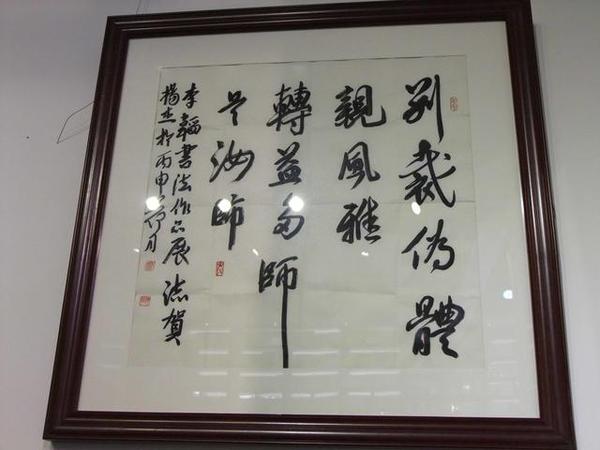 别裁偽體
親風雅
轉益多師
是汝師
李韜書法作品展誌賀
楊杰於丙申年何月